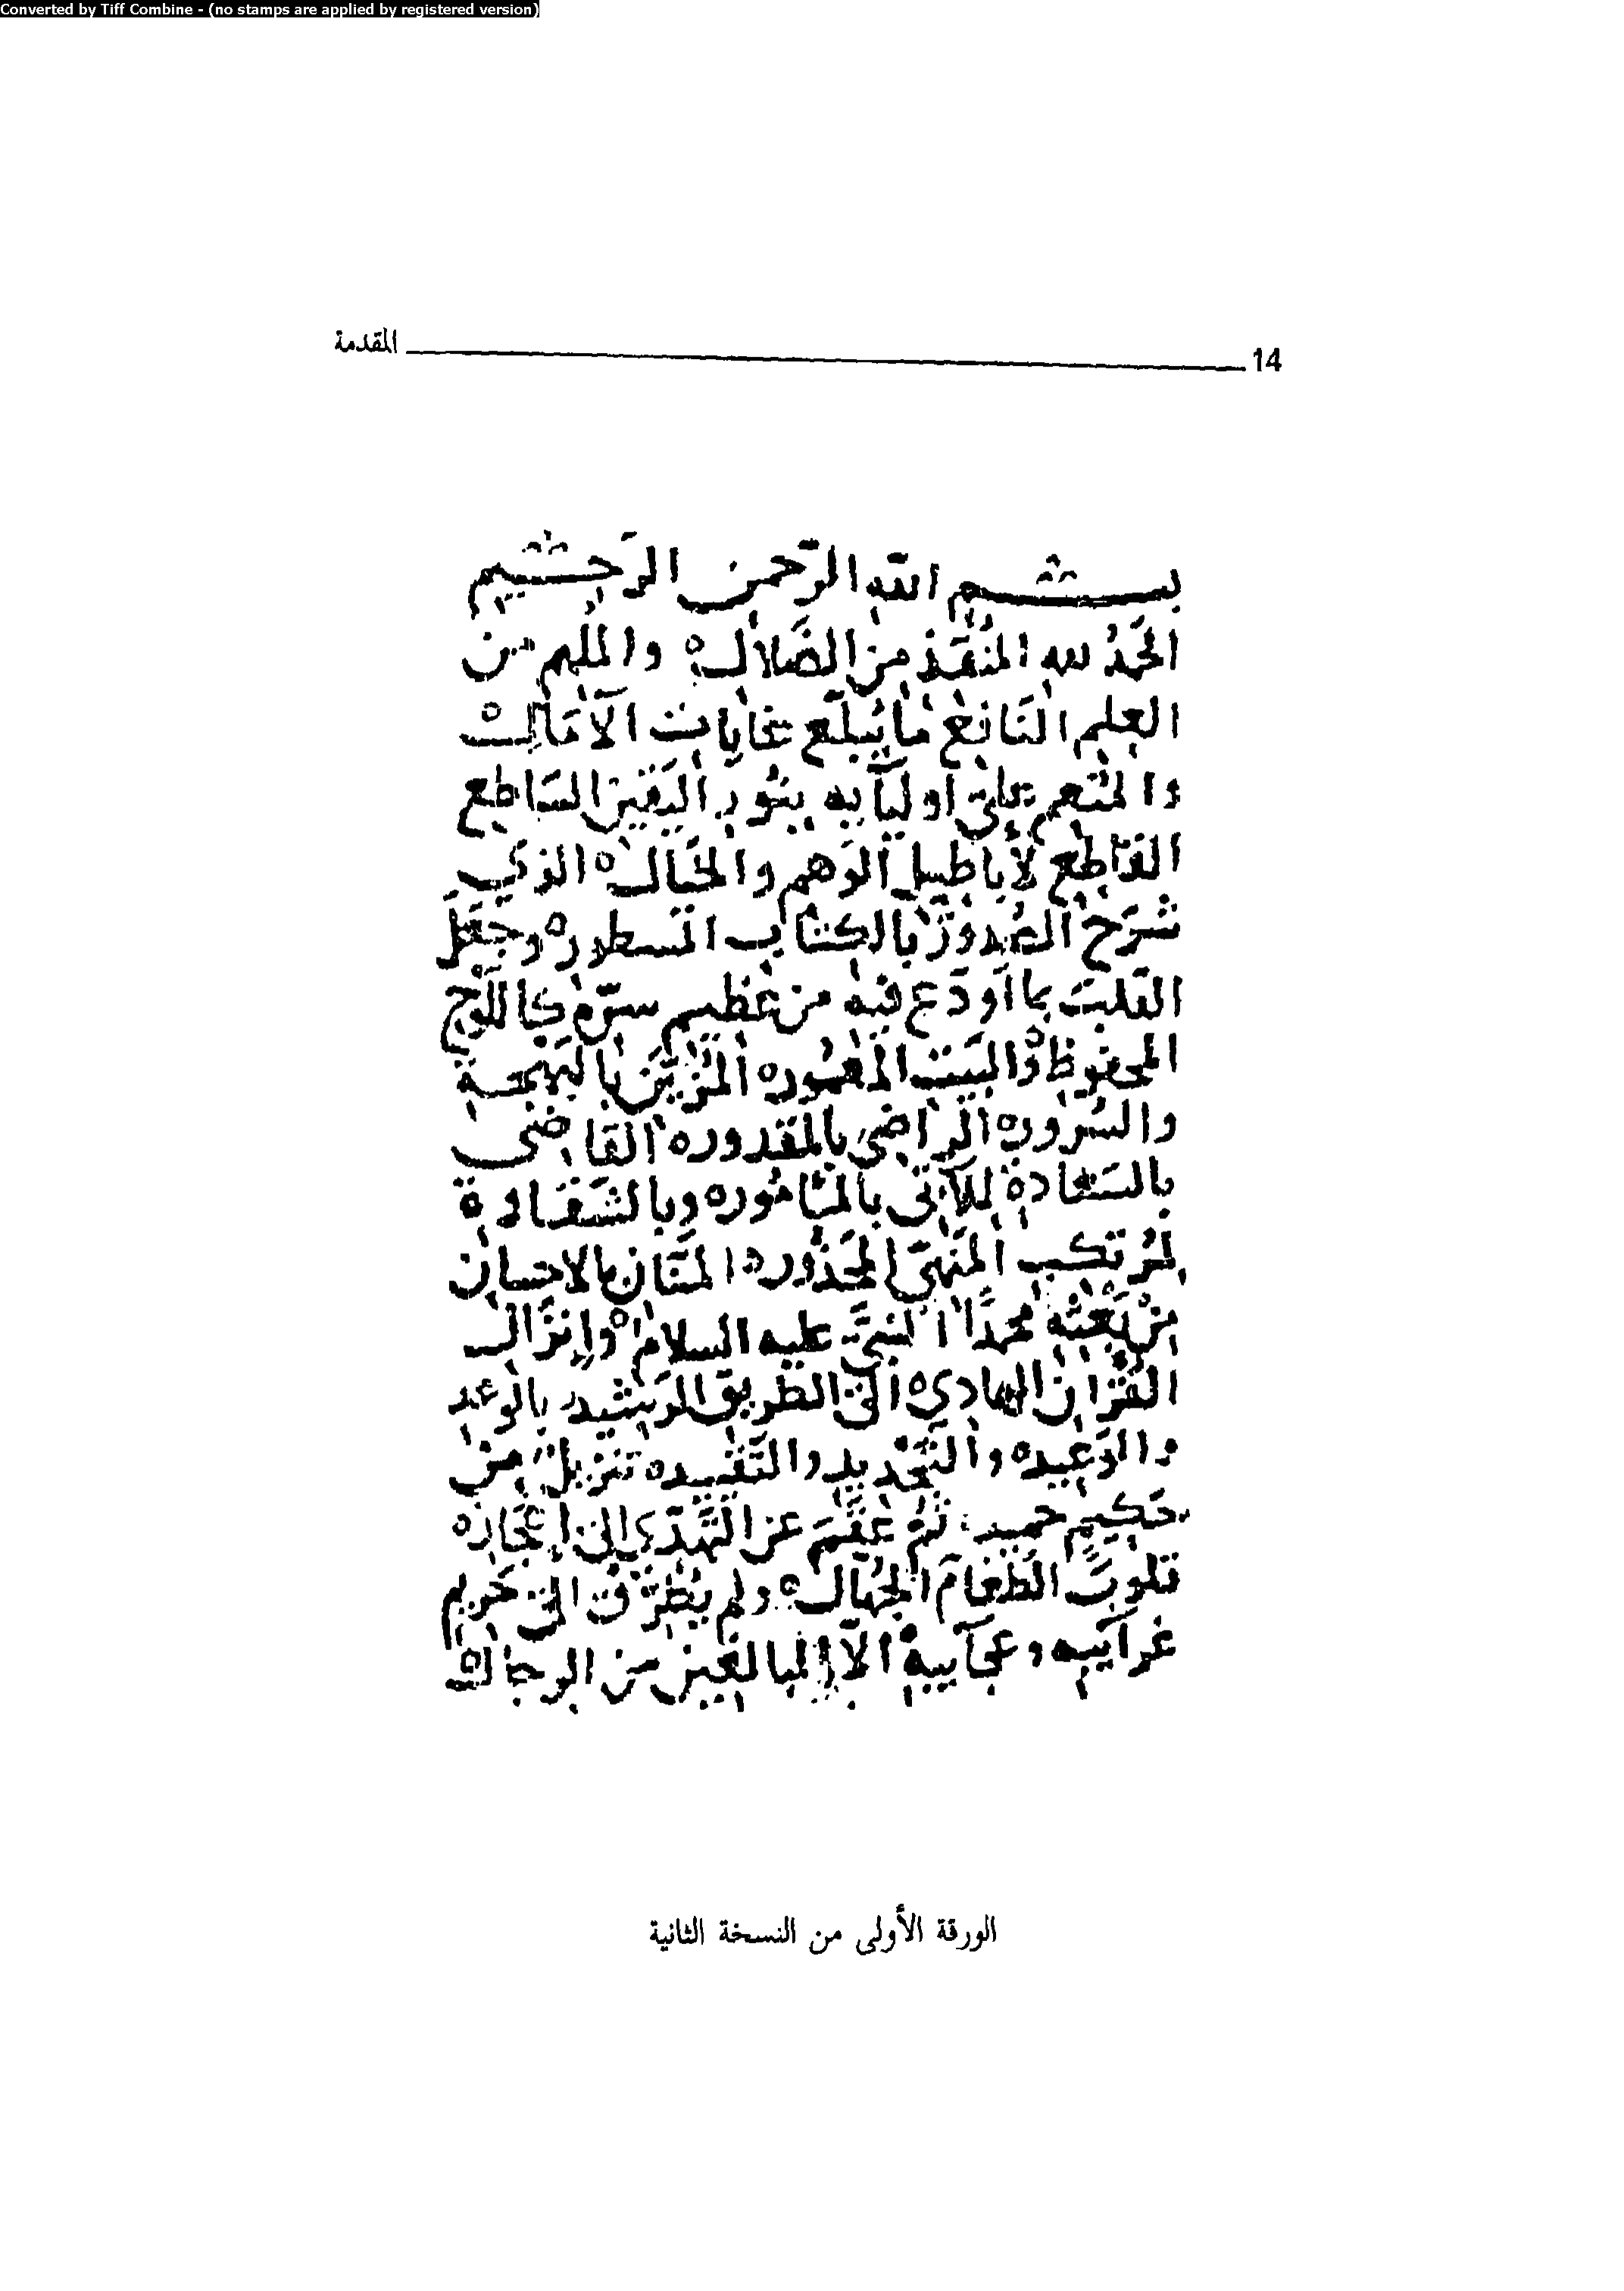 Converted by Tiff Combine - (no stamps are applied by registered version)
14 المقدمة
بسم الله الرحمن الرحيم
الحمد لله المنقذ من الضلال والملهم من
العلم النافع ما يبلغ غايات الآمال
والمنعم على اوليآيه بنور اليقين الساطع
القاطع لأباطيل الوهم والخيال الذي
شرح الصدور بالكتاب المسطور وجعل
القلب بما اودع فيه من عظيم سره كاللوح
المحفوظ والبيت المعمور المزين بالبهجة
والسرور الراضى بالمقدور القاضى
بالسعادة للآتى بالمأمور وبالشقاوة
لمرتكب المنهى المحذور المنان بالاحسان
من بعثه محمدا النبى عليه السلام وإنزال
القران الهادى الى الطريق الرشيد بالوعد
والوعيد والتحديد والتقييد تنزيل من
حكيم حميد ثم عقم عن التهدى إلى إعجازه
قلوب الطغام الجهال ولم يطرق الى حريم
غرآيبه وعجآيبه الا البالغين من الرجال
الورقة الأولى من النسخة الثانية